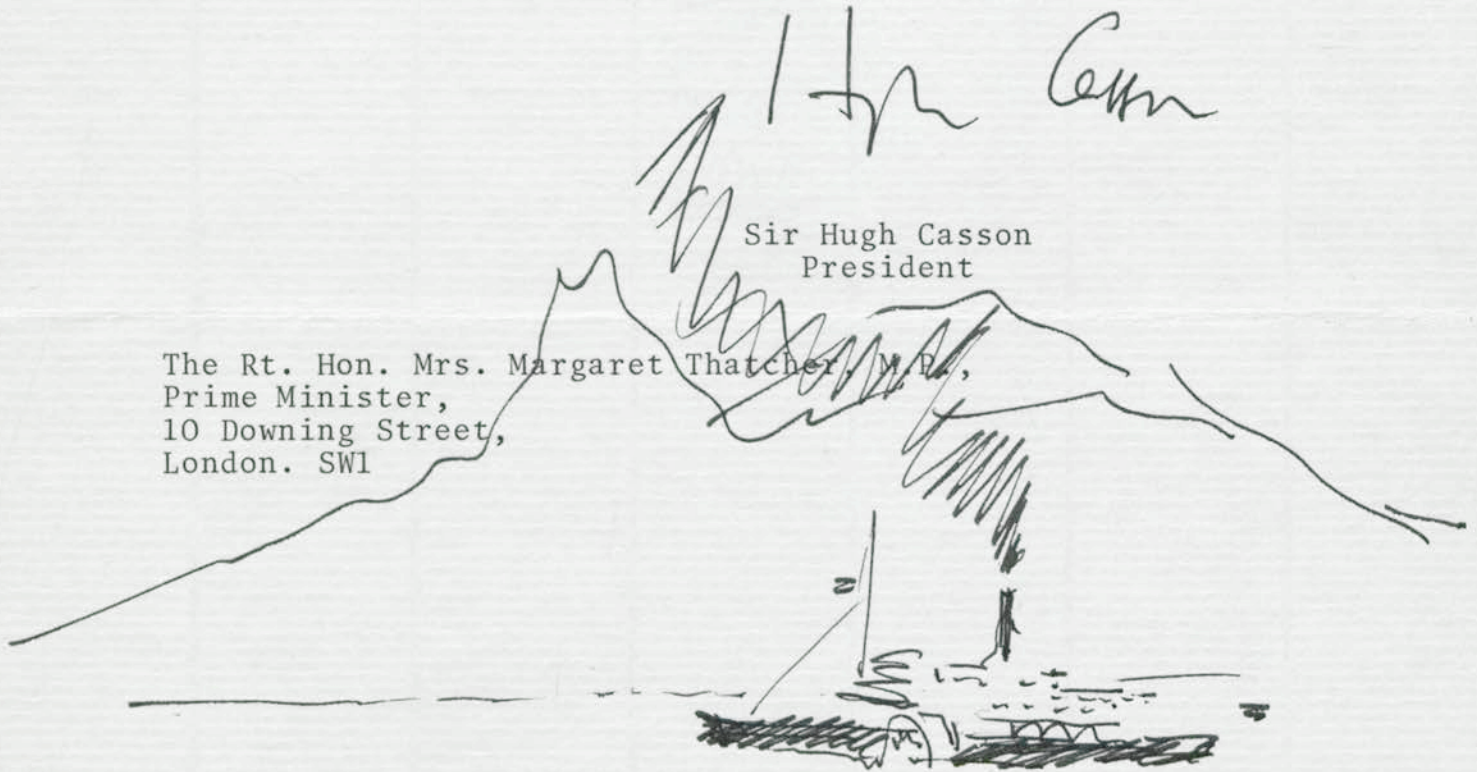 Hugh Casson
Sir Hugh Casson
President
The Rt. Hon. Mrs. Margaret Thatcher, M.P.,
Prime Minister,
10 Downing Street,
London. SW1